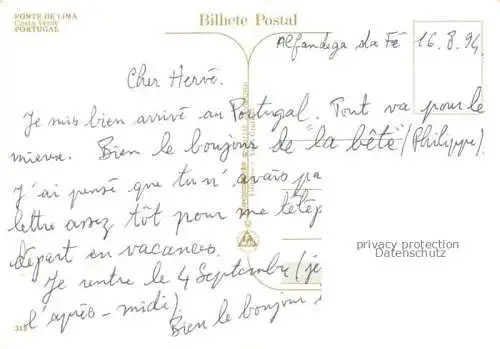 PONTE DE LIMA
Costa Verde
PORTUGAL
Bilhete Postal
Alfandega da Fé 16.8.94.
Cher Hervé.
Je suis bien arrivé au Portugal. Tout va pour le
mieux. Bien le bonjour de "la bête" (Philippe).
J'ai pensé que tu n'avais pa
lettre assez tôt pour me télép
départ en vacances.
Je rentre le 4 Septembre (je
l'après-midi).
Bien le bonjour
privacy protection
Datenschutz